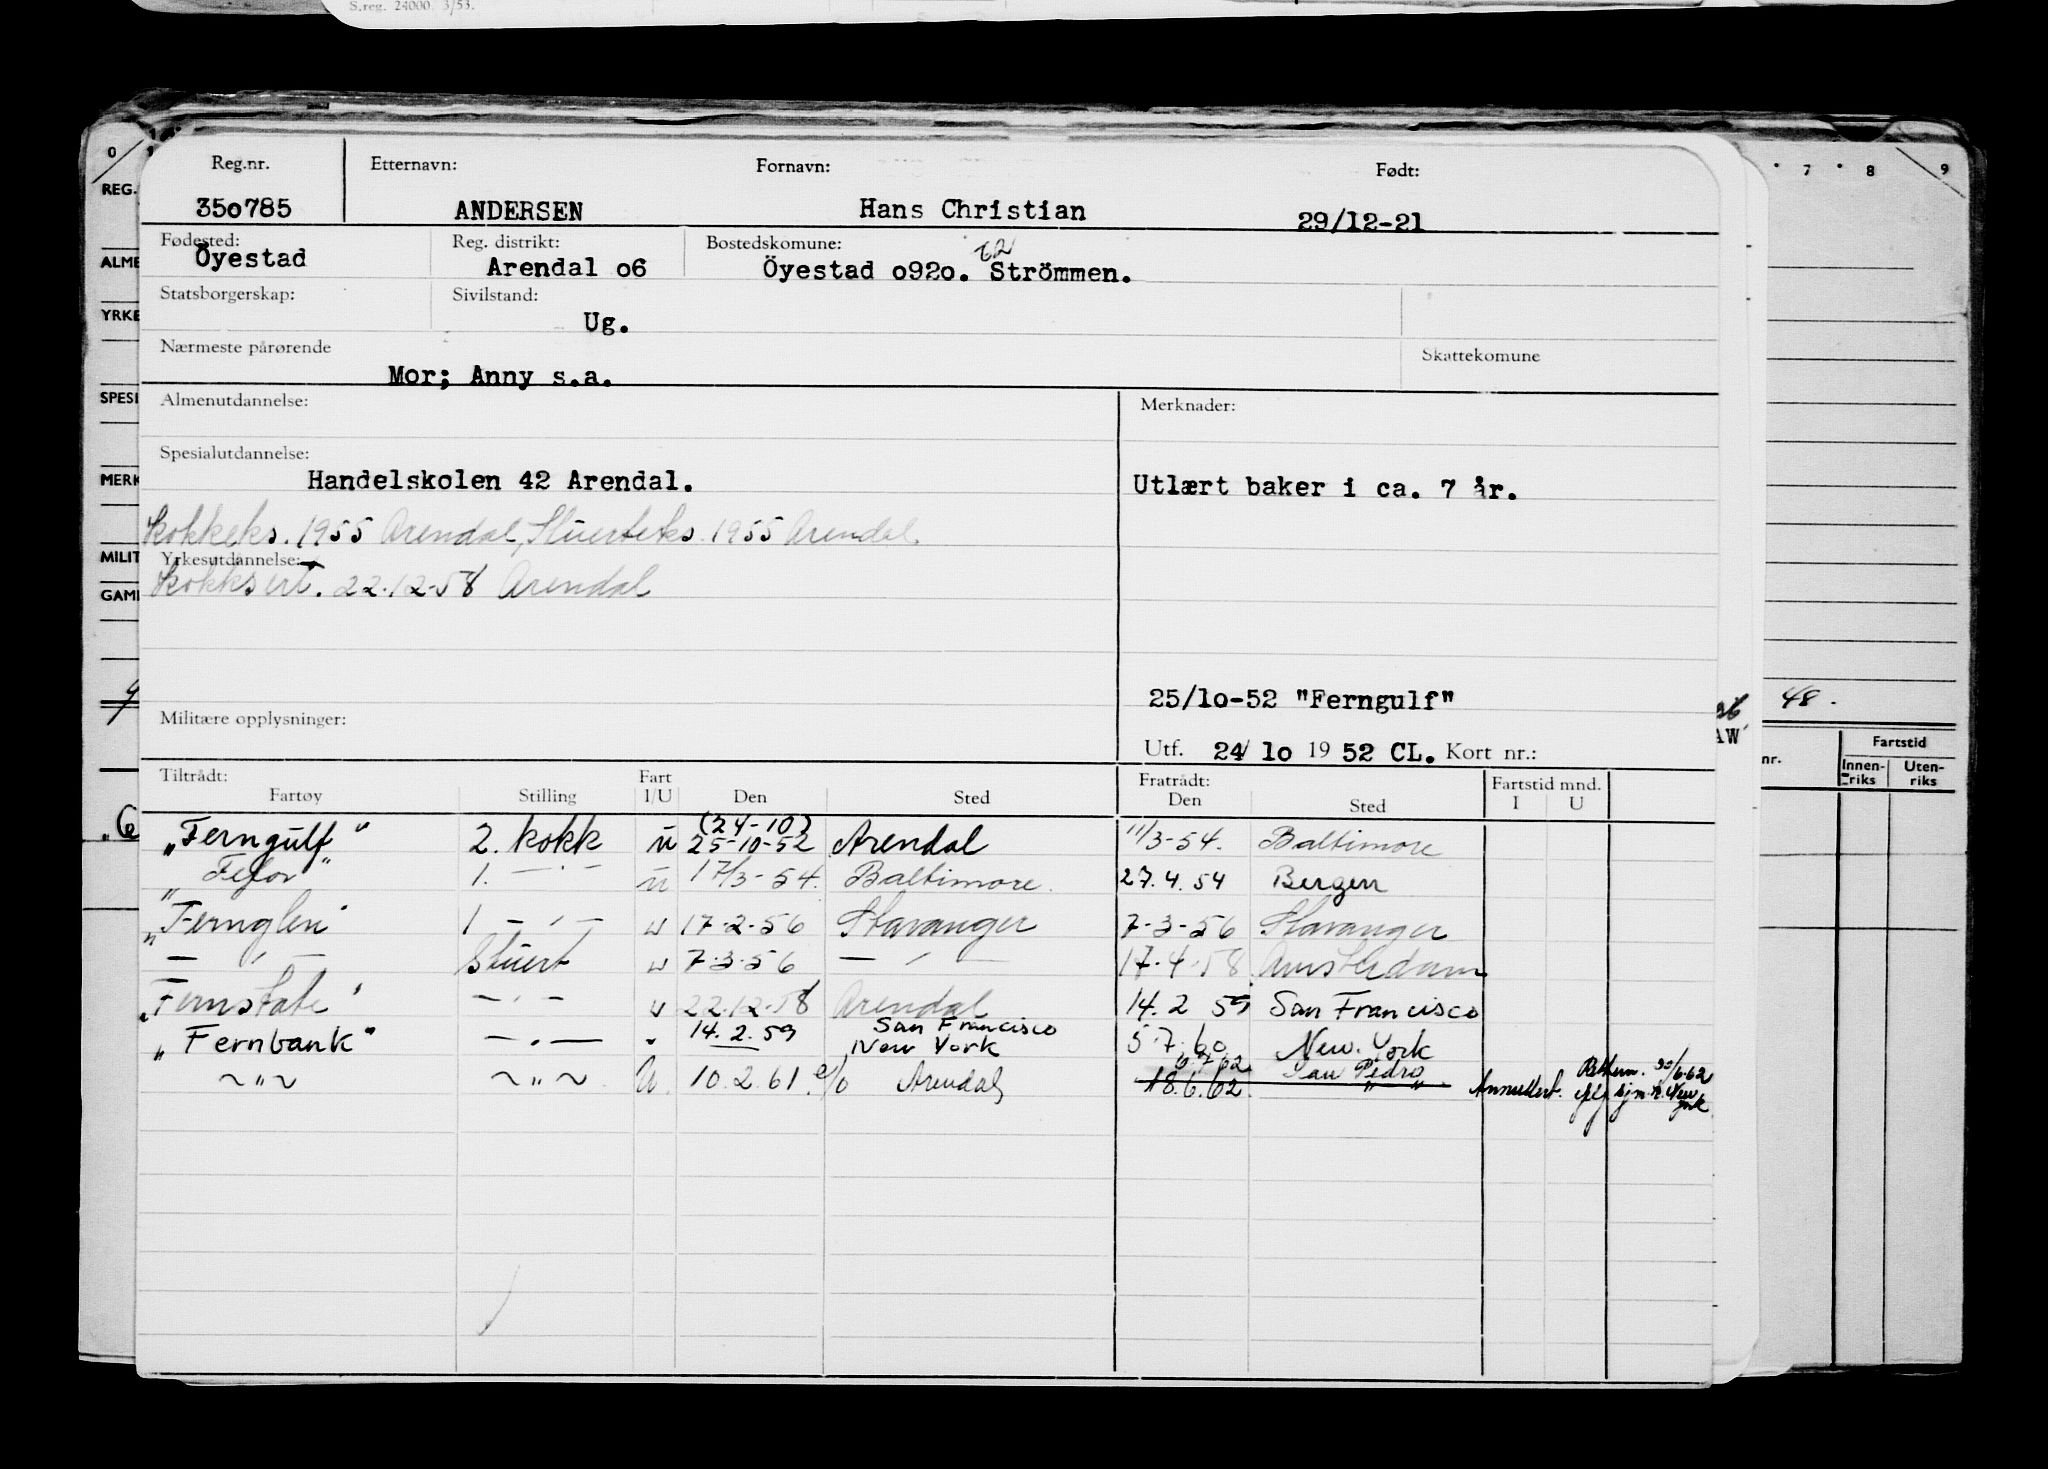 S.reg. 24000. 3/53.
0 7 8 9
Reg.nr. Etternavn: Fornavn: Født:
350785 ANDERSEN Hans Christian 29/12-21
Fødested: Reg. distrikt: Bostedskomune: 22
Öyestad Arendal o6 Öyestad o92o. Strömmen.
Statsborgerskap: Sivilstand:
Ug.
Nærmeste pårørende Skattekomune
Mor; Anny s.a.
Almenutdannelse: Merknader:
Spesialutdannelse:
Handelskolen 42 Arendal. Utlært baker i ca. 7 år.
Kokkeks. 1955 Arendal, Stuerteks. 1955 Arendal
Yrkesutdannelse:
Kokksert. 22.12.58 Arendal
25/lo-52 "Ferngulf"
Militære opplysninger:
Utf. 24/ lo 19 52 CL. Kort nr.:
Tiltrådt: Fart Fratrådt: Fartstid mnd.
Fartøy Stilling I/U Den Sted Den Sted I U
(24-10)
"Ferngulf" 2. kokk u 25-10-52 Arendal 11/3-54. Baltimore
" " 1. — " — u 17/3-54. Baltimore. 27.4.54 Bergen
"Fernglen" 1 — " — u 17.2.56 Stavanger 7.3.56 Stavanger
— " — Stuert u 7.3.56 — " — 17.4.58 Amsterdam
"Fernstate" — " — u 22.12.58 Arendal 14.2 59 San Francisco
"Fernbank" — " — " 14.2.59 San Francisco New York 5.7.60 New York
~ " ~ ~ " ~ U. 10.2.61 e/o Arendal 6.7.62 San Pedro
18.6.62. " " Annullert. 30/6-62 New York
REG.
ALME
YRKE
SPESI
MERK
MILIT
GAMI
48.
AW
nr. Fartstid
Innenriks Utenriks